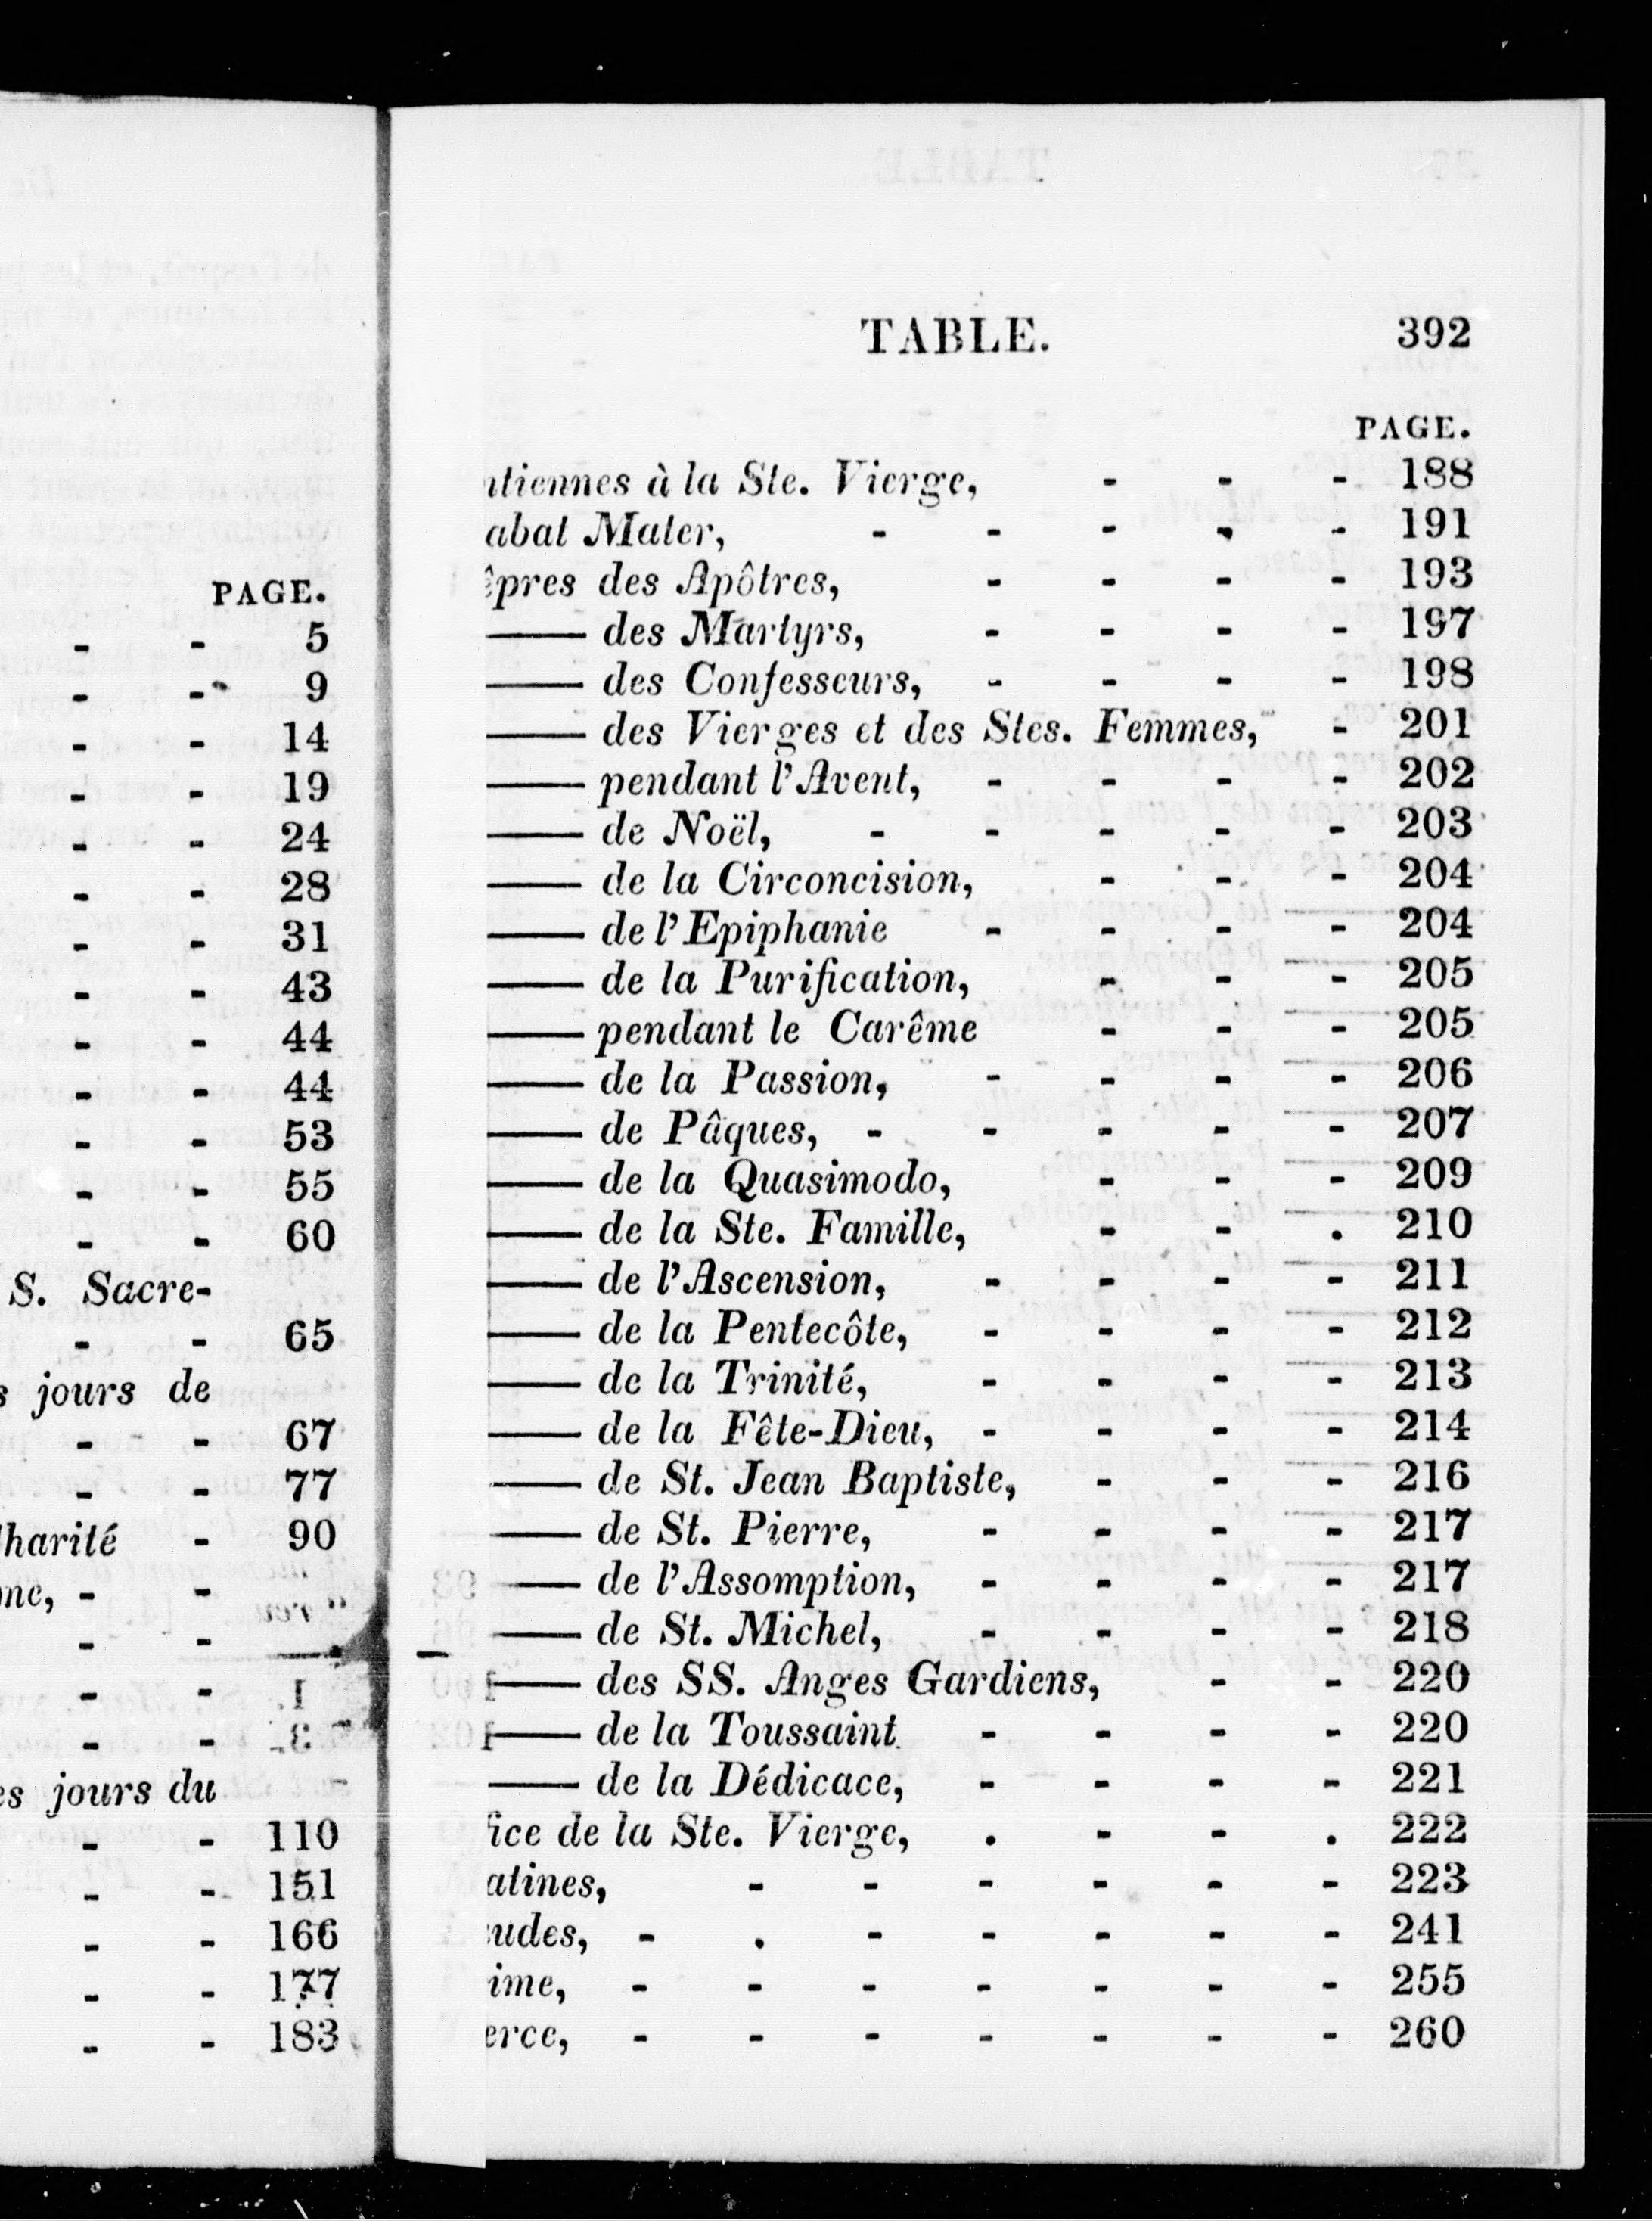 PAGE.
- - 5
- - 9
- - 14
- - 19
- - 24
- - 28
- - 31
- - 43
- - 44
- - 44
- - 53
- - 55
- - 60
S. Sacre-
- - 65
s jours de
- - 67
- - 77
harité - 90
me, - -
- -
- -
- -
es jours du
- - 110
- - 151
- - 166
- - 177
- - 183
TABLE. 392
PAGE.
ntiennes à la Ste. Vierge, - - - 188
abat Mater, - - - - - 191
êpres des Apôtres, - - - - 193
—— des Martyrs, - - - - 197
—— des Confesseurs, - - - - 198
—— des Vierges et des Stes. Femmes, - 201
—— pendant l'Avent, - - - - 202
—— de Noël, - - - - - 203
—— de la Circoncision, - - - 204
—— de l'Epiphanie - - - - 204
—— de la Purification, - - - 205
—— pendant le Carême - - - 205
—— de la Passion, - - - - 206
—— de Pâques, - - - - - 207
—— de la Quasimodo, - - - 209
—— de la Ste. Famille, - - . 210
—— de l'Ascension, - - - - 211
—— de la Pentecôte, - - - - 212
—— de la Trinité, - - - - 213
—— de la Fête-Dieu, - - - - 214
—— de St. Jean Baptiste, - - - 216
—— de St. Pierre, - - - - 217
—— de l'Assomption, - - - - 217
—— de St. Michel, - - - - 218
—— des SS. Anges Gardiens, - - 220
—— de la Toussaint - - - - 220
—— de la Dédicace, - - - - 221
ice de la Ste. Vierge, . - - . 222
atines, - - - - - - 223
udes, - . - - - - - 241
ime, - - - - - - - 255
erce, - - - - - - - 260